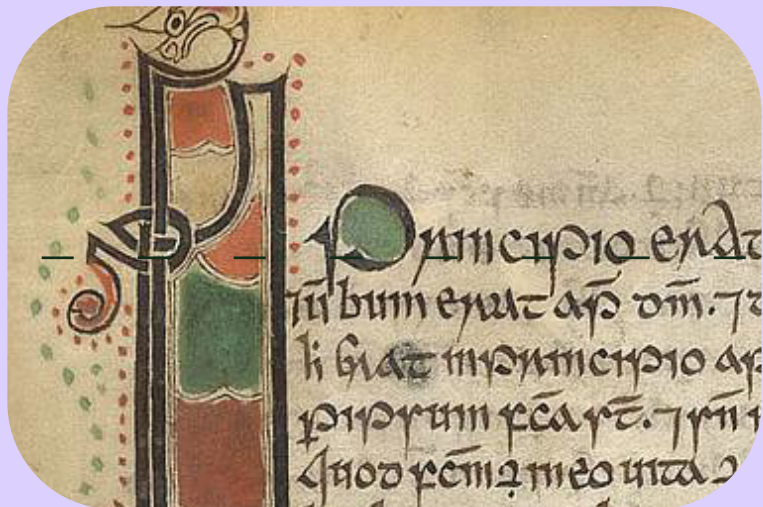 IN principio erat
⁊ū bum erat ap̄ dm̄. ⁊
erat inprincipio ap
ꝑ ipsum fc̄a st̄. ⁊ sn̄
Quod fcm̄ in eo uita